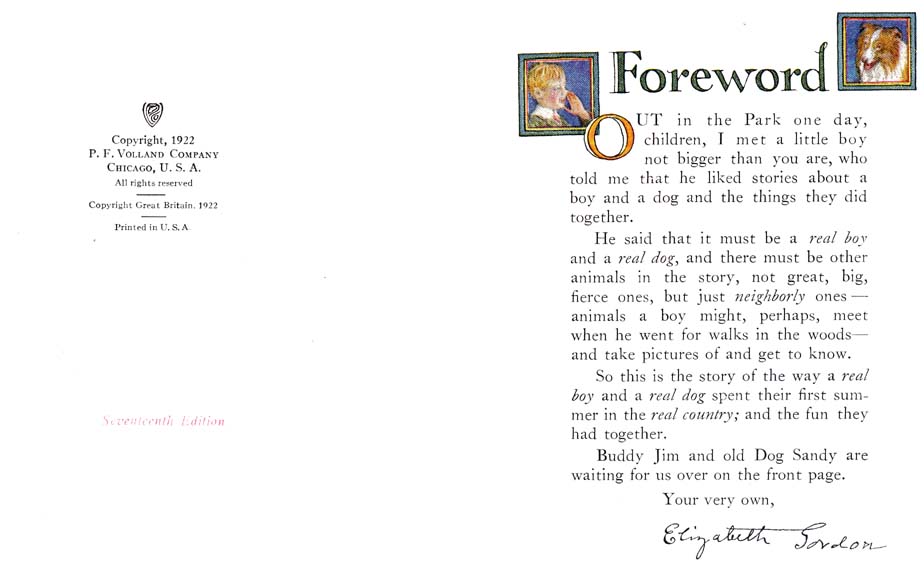 Copyright, 1922
P. F. VOLLAND COMPANY
CHICAGO, U. S. A.
All rights reserved
Copyright Great Britain, 1922
Printed in U. S. A.
Seventeenth Edition
Foreword
OUT in the Park one day,
children, I met a little boy
not bigger than you are, who
told me that he liked stories about a
boy and a dog and the things they did
together.
He said that it must be a real boy
and a real dog, and there must be other
animals in the story, not great, big,
fierce ones, but just neighborly ones —
animals a boy might, perhaps, meet
when he went for walks in the woods—
and take pictures of and get to know.
So this is the story of the way a real
boy and a real dog spent their first sum-
mer in the real country; and the fun they
had together.
Buddy Jim and old Dog Sandy are
waiting for us over on the front page.
Your very own,
Elizabeth Gordon